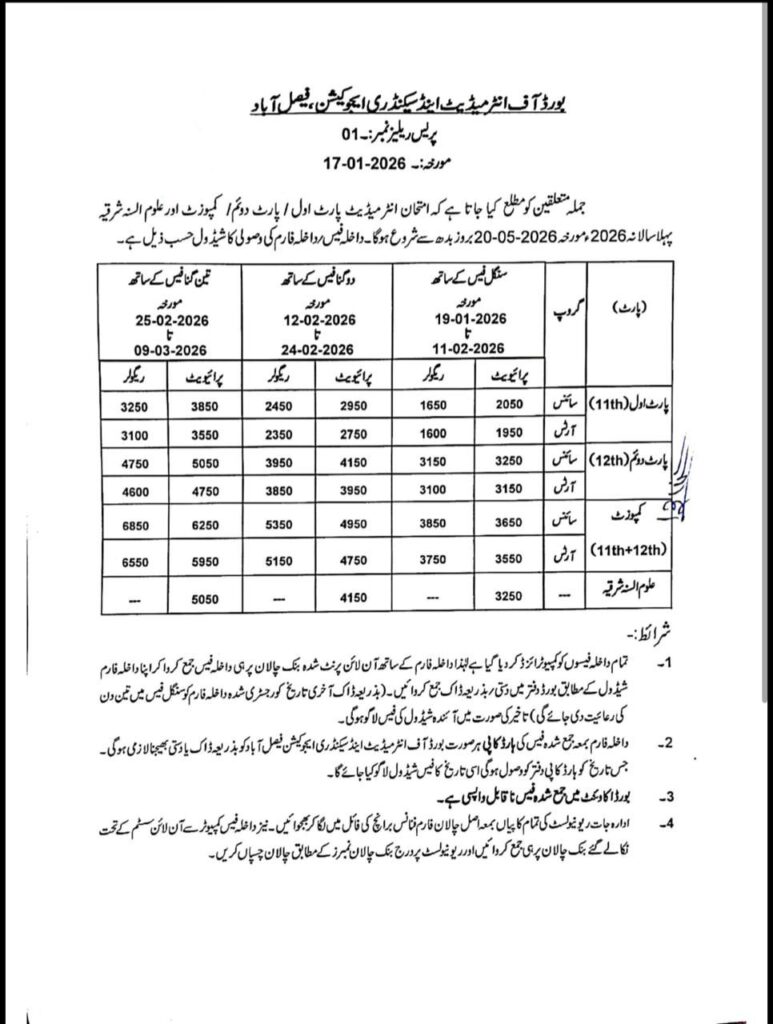 بورڈ آف انٹرمیڈیٹ اینڈ سیکنڈری ایجوکیشن، فیصل آباد
پریس ریلیز نمبر:۔ 01
مورخہ:۔ 17-01-2026
جملہ متعلقین کو مطلع کیا جاتا ہے کہ امتحان انٹرمیڈیٹ پارٹ اول / پارٹ دوئم / کمپوزٹ اور علوم السنہ شرقیہ
پہلا سالانہ 2026ء مورخہ 20-05-2026 بروز بدھ سے شروع ہوگا۔ داخلہ فیس/ داخلہ فارم کی وصولی کا شیڈول حسب ذیل ہے۔
(پارٹ) گروپ سنگل فیس کے ساتھ مورخہ 19-01-2026 تا 11-02-2026 دوگنا فیس کے ساتھ مورخہ 12-02-2026 تا 24-02-2026 تین گنا فیس کے ساتھ مورخہ 25-02-2026 تا 09-03-2026
پرائیویٹ ریگولر پرائیویٹ ریگولر پرائیویٹ ریگولر
پارٹ اول (11th) سائنس 2050 1650 2950 2450 3850 3250
آرٹس 1950 1600 2750 2350 3550 3100
پارٹ دوئم (12th) سائنس 3250 3150 4150 3950 5050 4750
آرٹس 3150 3100 3950 3850 4750 4600
کمپوزٹ سائنس 3650 3850 4950 5350 6250 6850
(11th+12th) آرٹس 3550 3750 4750 5150 5950 6550
علوم السنہ شرقیہ --- 3250 --- 4150 --- 5050 ---
شرائط:-
1۔ تمام داخلہ فیسوں کو کمپیوٹرائزڈ کر دیا گیا ہے لہٰذا داخلہ فارم کے ساتھ آن لائن پرنٹ شدہ بنک چالان پر ہی داخلہ فیس جمع کروا کر اپنا داخلہ فارم
شیڈول کے مطابق بورڈ دفتر میں دستی/ بذریعہ ڈاک جمع کروائیں۔ (بذریعہ ڈاک آخری تاریخ کو رجسٹری شدہ داخلہ فارم کو سنگل فیس میں تین دن
کی رعایت دی جائے گی) تاخیر کی صورت میں آئندہ شیڈول کی فیس لاگو ہوگی۔
2۔ داخلہ فارم بمعہ جمع شدہ فیس کی ہارڈ کاپی ہر صورت بورڈ آف انٹرمیڈیٹ اینڈ سیکنڈری ایجوکیشن فیصل آباد کو بذریعہ ڈاک یا دستی بھیجنا لازمی ہوگی۔
جس تاریخ کو ہارڈ کاپی دفتر کو وصول ہوگی اسی تاریخ کا فیس شیڈول لاگو کیا جائے گا۔
3۔ بورڈ اکاونٹ میں جمع شدہ فیس ناقابل واپسی ہے۔
4۔ ادارہ جات ریونیو لسٹ کی تمام کاپیاں بمعہ اصل چالان فارم فنانس برانچ کی فائل میں لگا کر بھجوائیں۔ نیز داخلہ فیس کمپیوٹر سے آن لائن سسٹم کے تحت
نکالے گئے بنک چالان پر ہی جمع کروائیں اور ریونیو لسٹ پر درج بنک چالان نمبرز کے مطابق چالان چسپاں کریں۔